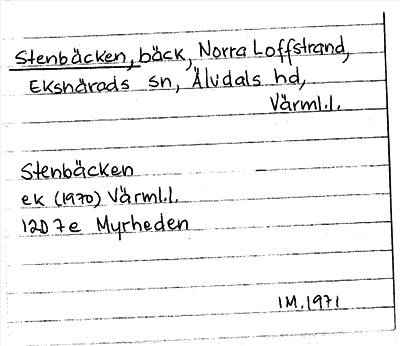 Stenbäcken, bäck, Norra Loffstrand,
Ekshärads sn, Älvdals hd,
Värml.l.
Stenbäcken
ek (1970) Värml.l.
12D 7e Myrheden
IM.1971